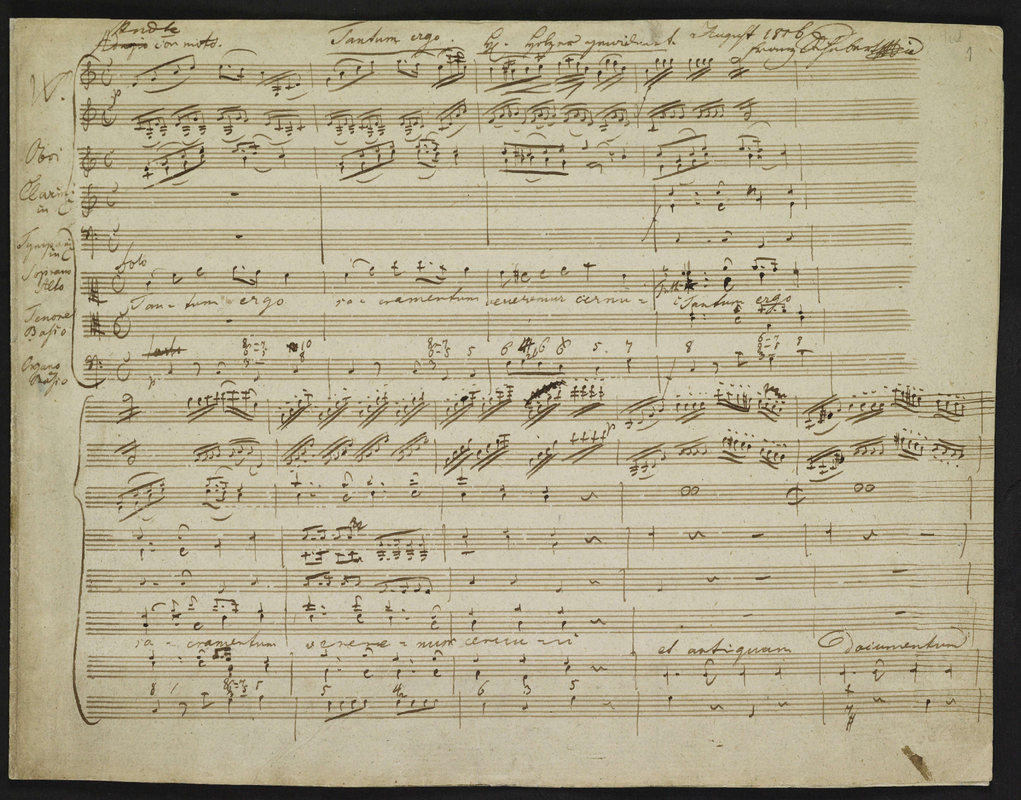 Andte
Adagio con moto. Tantum ergo. August 1816
Franz Schubert
1
V.
Oboi
Clarini
in C
Tympani
in C
Soprano
Alto
Tenore
Basso
Organo
Basso
Solo
Tan- tum ergo sa- cramentum veneremur cernu- i Tantum ergo
Tutti
sa- cramentum venere- mur cernu- i et antiquum Documentum